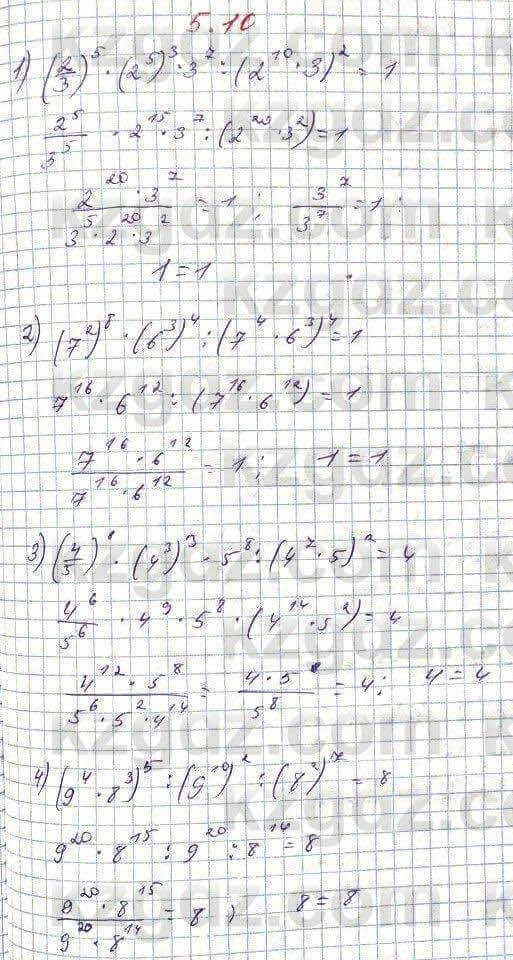 5.10
1) (2/3)^5 · (2^5)^3 · 3^7 : (2^10 · 3)^2 = 1
2^5/3^5 · 2^15 · 3^7 : (2^20 · 3^2) = 1
2^20 · 3^7 / 3^5 · 2^20 · 3^2 = 1 ; 3^7/3^7 = 1 ;
1 = 1
2) (7^2)^8 · (6^3)^4 : (7^4 · 6^3)^4 = 1
7^16 · 6^12 : (7^16 · 6^12) = 1
7^16 · 6^12 / 7^16 · 6^12 = 1 ; 1 = 1
3) (4/5)^6 · (4^3)^3 · 5^8 : (4^7 · 5)^2 = 4
4^6/5^6 · 4^9 · 5^8 · (4^14 · 5^2) = 4
4^12 · 5^8 / 5^6 · 5^2 · 4^14 = 4 · 5^8 / 5^8 = 4 ; 4 = 4
4) (9^4 · 8^3)^5 : (9^10)^2 : (8^2)^7 = 8
9^20 · 8^15 : 9^20 : 8^14 = 8
9^20 · 8^15 / 9^20 · 8^14 = 8 ; 8 = 8
kzgdz.com